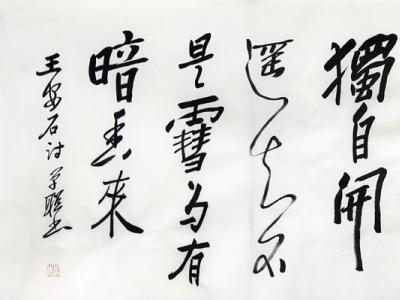 獨自開
遥知不
是雪为有
暗香來
王安石诗